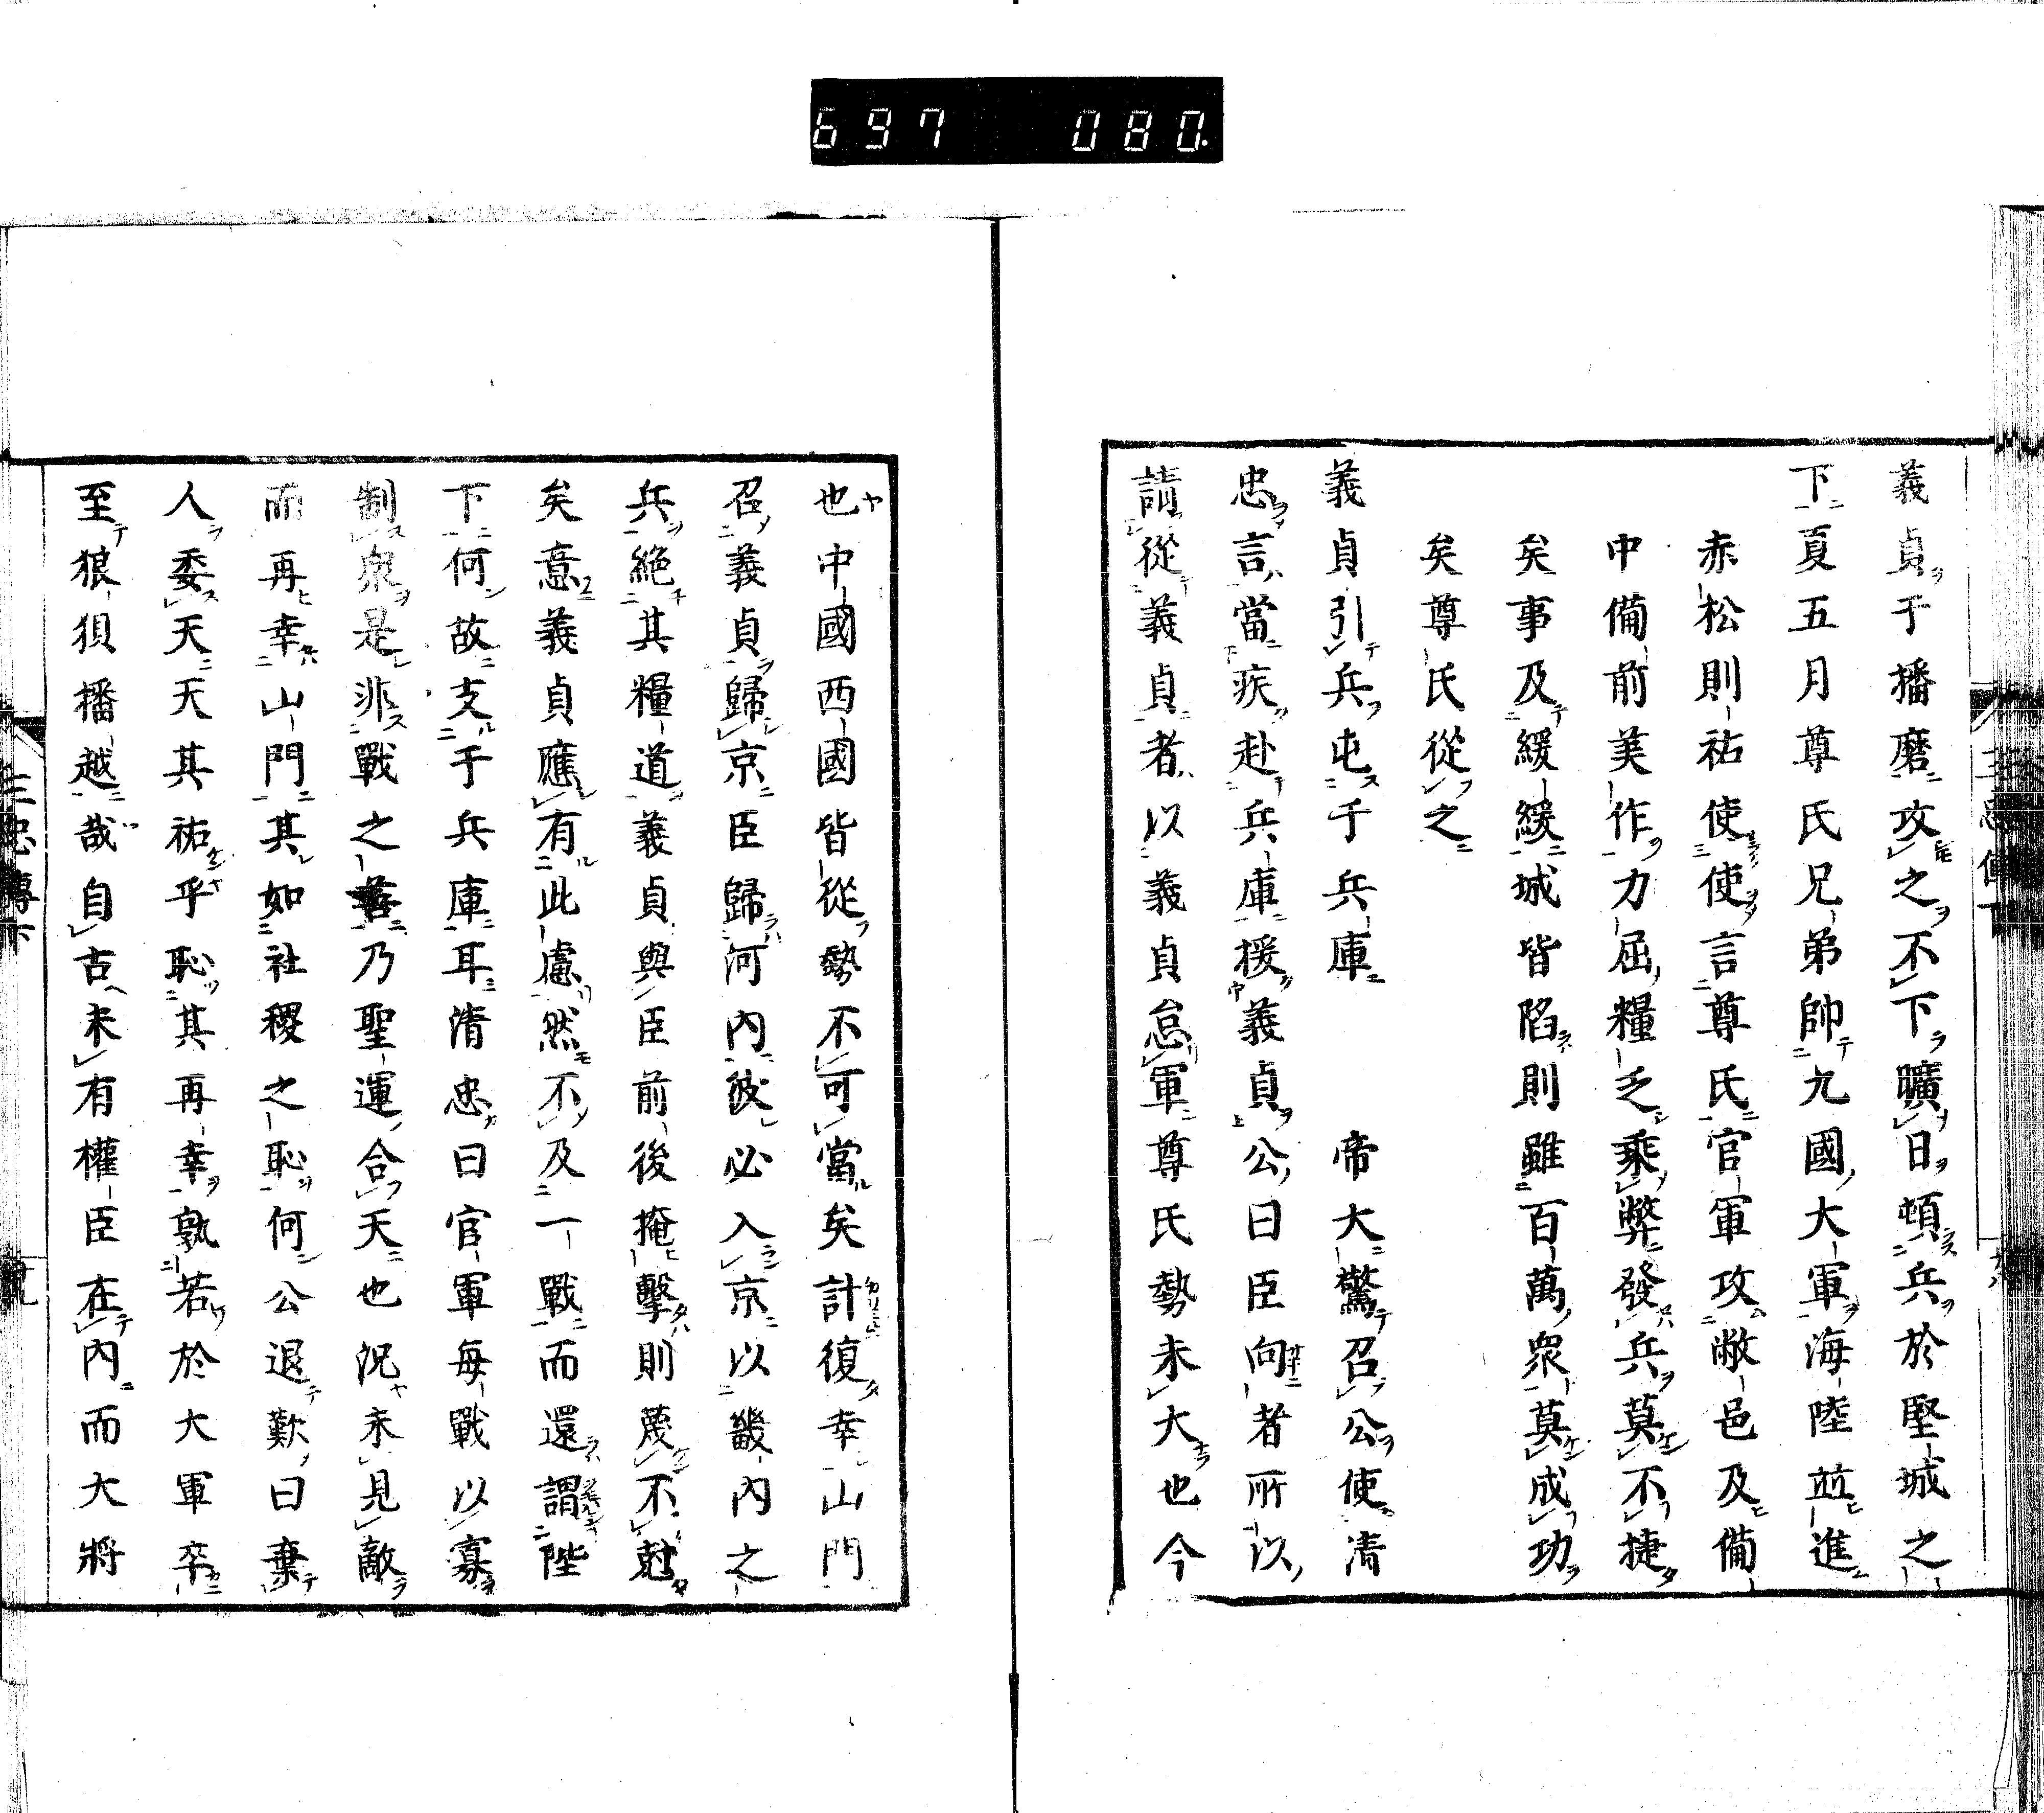 697 080.
義貞于播磨攻之不下曠日頓兵於堅城之
下夏五月尊氏兄弟帥九國大軍海陸並進
赤松則祐使使言尊氏官軍攻敝邑及備
中備前美作力屈糧乏乘弊發兵莫不捷
矣事及緩緩城皆陷則雖百萬衆莫成功
矣尊氏從之
義貞引兵屯于兵庫 帝大驚召公使清
忠言當疾赴兵庫援義貞公曰臣向者所以
請從義貞者以義貞怠軍尊氏勢未大也今
也中國西國皆從勢不可當矣計復幸山門
召義貞歸京臣歸河內彼必入京以畿內之
兵絕其糧道義貞與臣前後掩擊則蔑不尅
矣意義貞應有此慮然不及一戰而還謂陛
下何故支于兵庫耳清忠曰官軍每戰以寡
制衆是非戰之善乃聖運合天也況未見敵
而再幸山門其如社稷之恥何公退歎曰棄
人委天天其祐乎恥其再幸孰若於大軍卒
至狼狽播越哉自古未有權臣在內而大將
三忠傳下